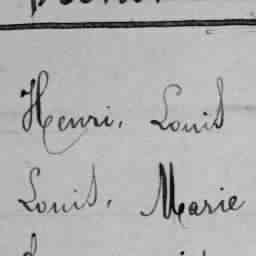 Henri, Louis
Louis, Marie